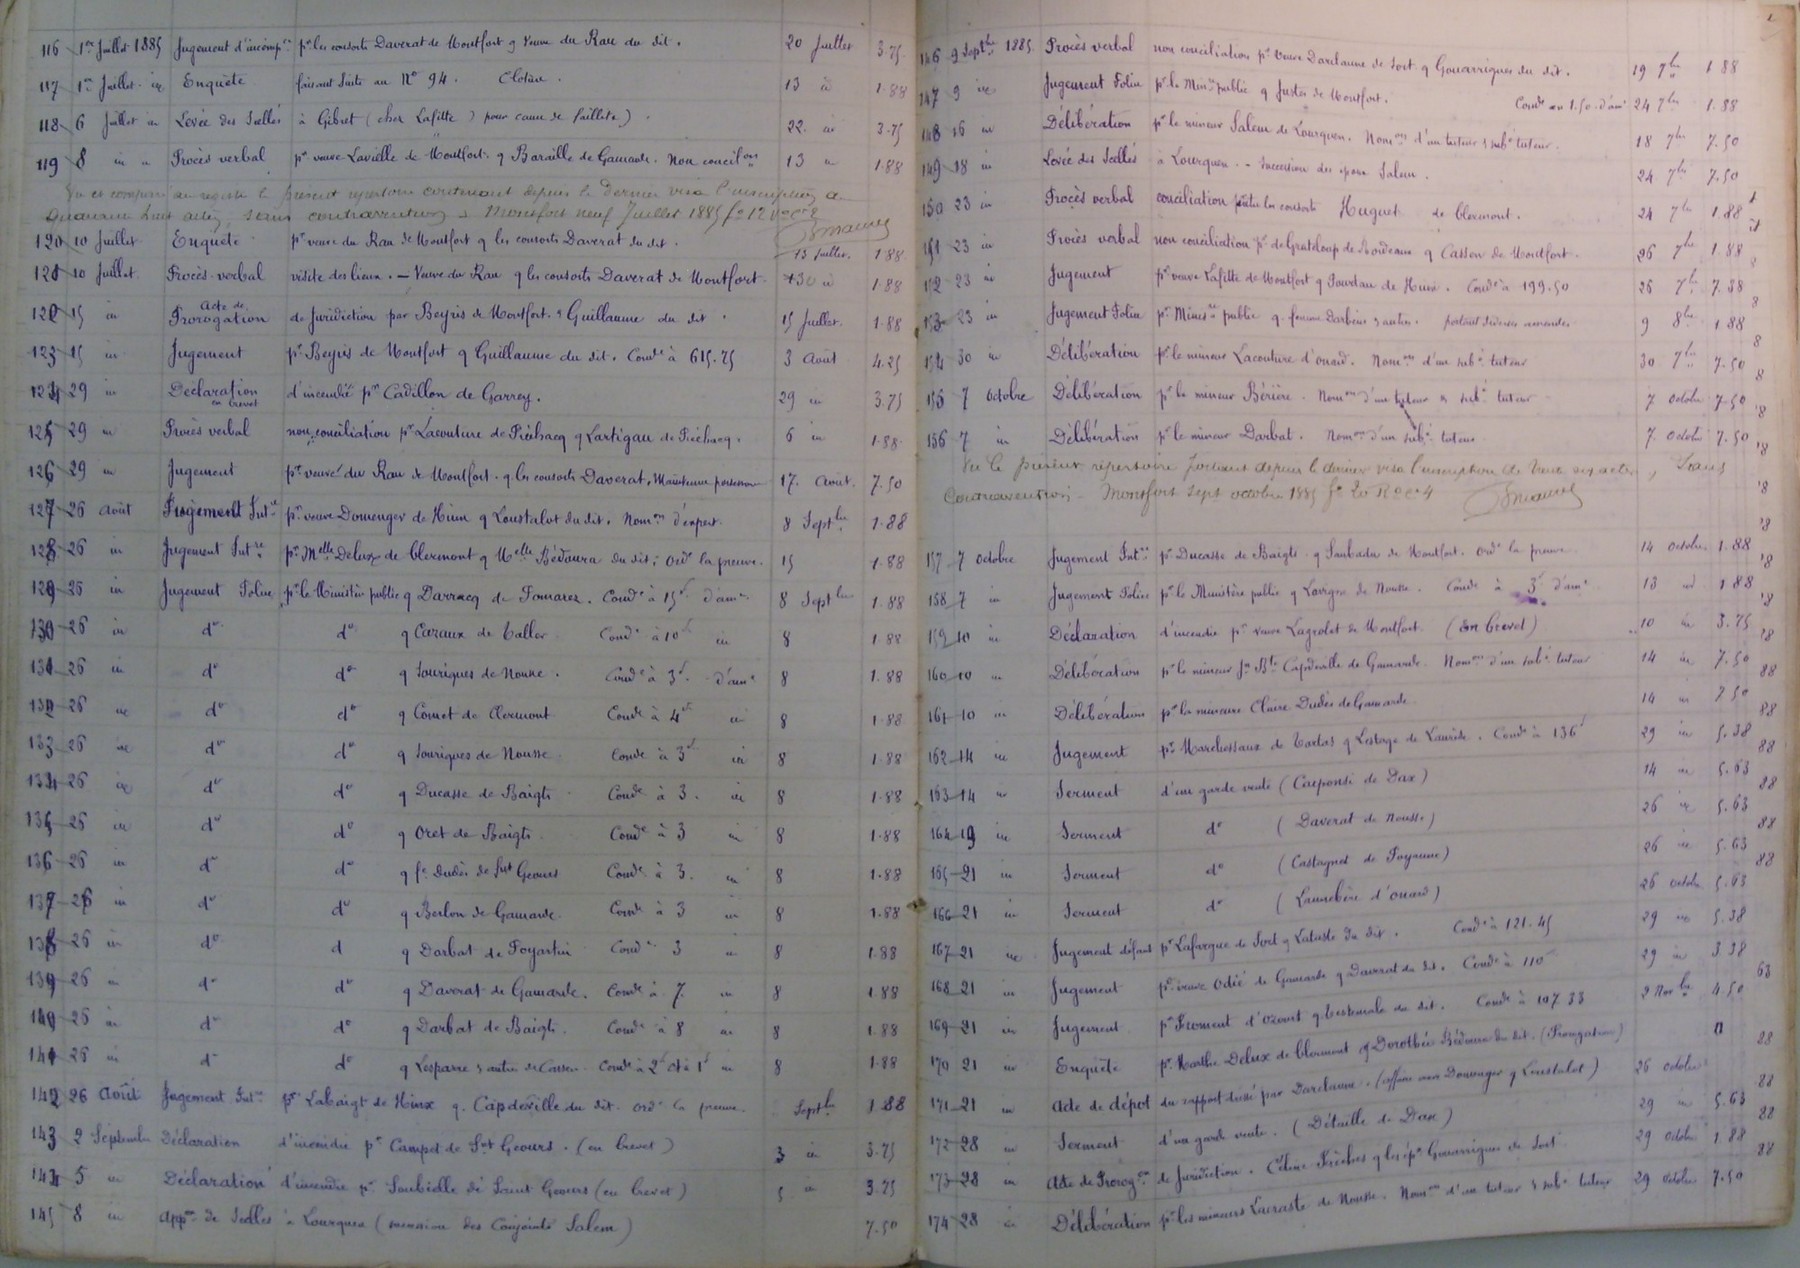 116 1er Juillet 1885 Jugement d'incompce pr les consorts Daverat de Montfort q Veuve du Rau du dit. 20 Juillet 3.75
117 1er Juillet in Enquête faisant suite au No 94. Cloture. 13 in 1.88
118 6 Juillet in Levée des Scellés à Gibret (chez Lafitte) pour cause de faillite). 22. in 3.75
119 8 in Procès verbal pr veuve Lavielle de Montfort. q Baraille de Gamarde. Non concilon 13 in 1.88
Vu et comparé au registre le présent répertoire contenant depuis le dernier visa l'inscription de
quarante huit actes, sans contravention à Montfort neuf Juillet 1885 fo 12 Vo Ce 8
120 10 Juillet Enquête pr veuve du Rau de Montfort q les consorts Daverat du dit. 13 Juillet. 1.88
121 10 Juillet Procès-verbal visite des lieux. – Veuve du Rau q les consorts Daverat de Montfort. 30 in 1.88
122 15 in Acte de Prorogation de Juridiction par Beyris de Montfort. & Guillaume du dit. 15 Juillet. 1.88
123 15 in Jugement pr Beyris de Montfort q Guillaume du dit. Condé à 615.75 3 Août 4.25
124 29 in Déclaration en brevet d'incendie pr Cadillon de Garrey. 29 in 3.75
125 29 in Procès verbal non conciliation pr Lacouture de Préchacq q Lartigau de Préchacq. 6 in 1.88
126 29 in Jugement pr veuve du Rau de Montfort. q les consorts Daverat. Maintenue possession 17. Août. 7.50
127 26 Août Jugement Intre pr veuve Domenger de Hinx q Loustalot du dit. Nomon d'expert. 8 Septbre 1.88
128 26 in Jugement Intre pr Melle Delux de Clermont q Melle Bédoura du dit; Ordt la preuve. 15 1.88
129 26 in Jugement Police pr le Ministère public q Darracq de Pomarez. Condé à 15f d'ame 8 Septbre 1.88
130 26 in do do q Cazaux de Taller Condé à 10f in 8 1.88
131 26 in do do q Sourigues de Nousse. Condé à 3f. d'ame 8 1.88
132 26 in do do q Comet de Clermont Condé à 4f in 8 1.88
133 26 in do do q Sourigues de Nousse Condé à 3f in 8 1.88
134 26 in do do q Ducasse de Baigts Condé à 3. in 8 1.88
135 26 in do do q Oret de Baigts. Condé à 3 in 8 1.88
136 26 in do do q fe Dudès de Snt Geours Condé à 3. in 8 1.88
137 26 in do do q Berlon de Gamarde. Condé à 3 in 8 1.88
138 26 in do d q Darbat de Poyartin Condé 3 in 8 1.88
139 26 in do do q Daverat de Gamarde. Condé à 7. in 8 1.88
140 26 in do do q Darbat de Baigts. Condé à 8 in 8 1.88
141 26 in do do q Lesparre & autre de Cassen. Condé à 2f et à 1f in 8 1.88
142 26 Août Jugement Intre pr Labaigt de Hinx q. Capdeville du dit. Ordt la preuve. Septbre 1.88
143 2 Septembre Déclaration d'incendie pr Campet de Snt Geours. (en brevet) 3 in 3.75
144 5 in Déclaration d'incendie pr Soubielle de Saint Geours (en brevet) 5 in 3.75
145 8 in Appon de Scellés à Lourquen (succession des Conjoints Salem) 7.50
146 9 Septbre 1885. Procès verbal non conciliation pr Veuve Darclanne de Sort q Gouarrigues du dit. 19 7bre 1.88
147 9 in Jugement Police pr le Minre public q Justes de Montfort. Condé en 1.50 d'ame 24 7bre 1.88
148 16 in Délibération pr le mineur Salem de Lourquen. Nomon d'un tuteur & subé tuteur. 18 7bre 7.50
149 18 in Levée des Scellés à Lourquen. - succession des époux Salem. 24 7bre 7.50
150 23 in Procès verbal conciliation entre les consorts Huguet de Clermont. 24 7bre 1.88
151 23 in Procès verbal non conciliation pr de Grateloup de Bordeaux q Cassen de Montfort. 26 7bre 1.88
152 23 in Jugement pr veuve Lafitte de Montfort q Jourdan de Hinx. Condé à 199.50 26 7bre 7.38
153 23 in Jugement Police pr Minisre public q. femme Darbins & autres. portant diverses amendes 9 8bre 1.88
154 30 in Délibération pr le mineur Lacouture d'onard. Nomon d'un subé tuteur 30 7bre 7.50
155 7 Octobre Délibération pr le mineur Bérière. Nomon d'un tuteur & subé tuteur 7 Octobre 7.50
156 7 in Délibération pr le mineur Darbat. Nomon d'un subé. tuteur 7. Octobre 7.50
Vu le présent répertoire portant depuis le dernier visa l'inscription de trente six actes, sans
contravention. Montfort sept octobre 1885 fo 20 Ro Ce 4
157 7 Octobre Jugement Intre pr Ducasse de Baigts q Soubadu de Montfort. Ordt la preuve 14 octobre 1.88
158 7 in Jugement Police pr le Ministère public q Lavigne de Nousse. Condé à 3f d'ame 13 in 1.88
159 10 in Déclaration d'incendie pr veuve Lagrolet de Montfort. (En brevet) 10 in 3.75
160 10 in Délibération pr le mineur Jn Bte Capdeville de Gamarde. Nomon d'un subé. tuteur 14 in 7.50
161 10 in Délibération pr la mineure Claire Dudès de Gamarde 14 in 7.50
162 14 in Jugement pr Marchessaux de Tartas q Lestage de Laurède. Condé à 136f 29 in 5.38
163 14 in Serment d'un garde vente (Caeponsi de Dax) 14 in 5.63
164 19 in Serment do (Daverat de Nousse) 26 in 5.63
165 21 in Serment do (Castagnet de Poyanne) 26 in 5.63
166 21 in Serment do (Lannebère d'onard) 26 octobre 5.63
167 21 in Jugement défaut pr Lafargue de Sort q Lataste du dit. Condé à 121.45 29 in 5.38
168 21 in Jugement pr veuve Odié de Gamarde q Daverat du dit. Condé à 110f 29 in 3.38
169 21 in Jugement pr Froment d'Ozourt q Lestremale du dit. Condé à 107.33 2 Novbre 4.50
170 21 in Enquête pr Marthe Delux de Clermont q Dorothée Bédoura du dit. (Prorogation) 11
171 21 in Acte de dépôt du rapport dressé par Darclanne. (affaire veuve Domenger q Loustalot) 26 octobre
172 28 in Serment d'un garde vente. (Détaille de Dax) 29 in 5.63
173 28 in Acte de Prorogon de Juridiction. Céline Prèches q les ép. Gouarrigues de Sort 29 octobre 1.88
174 28 in Délibération pr les mineurs Lacraste de Nousse. Nomon d'un tuteur & subé tuteur 29 octobre 7.50